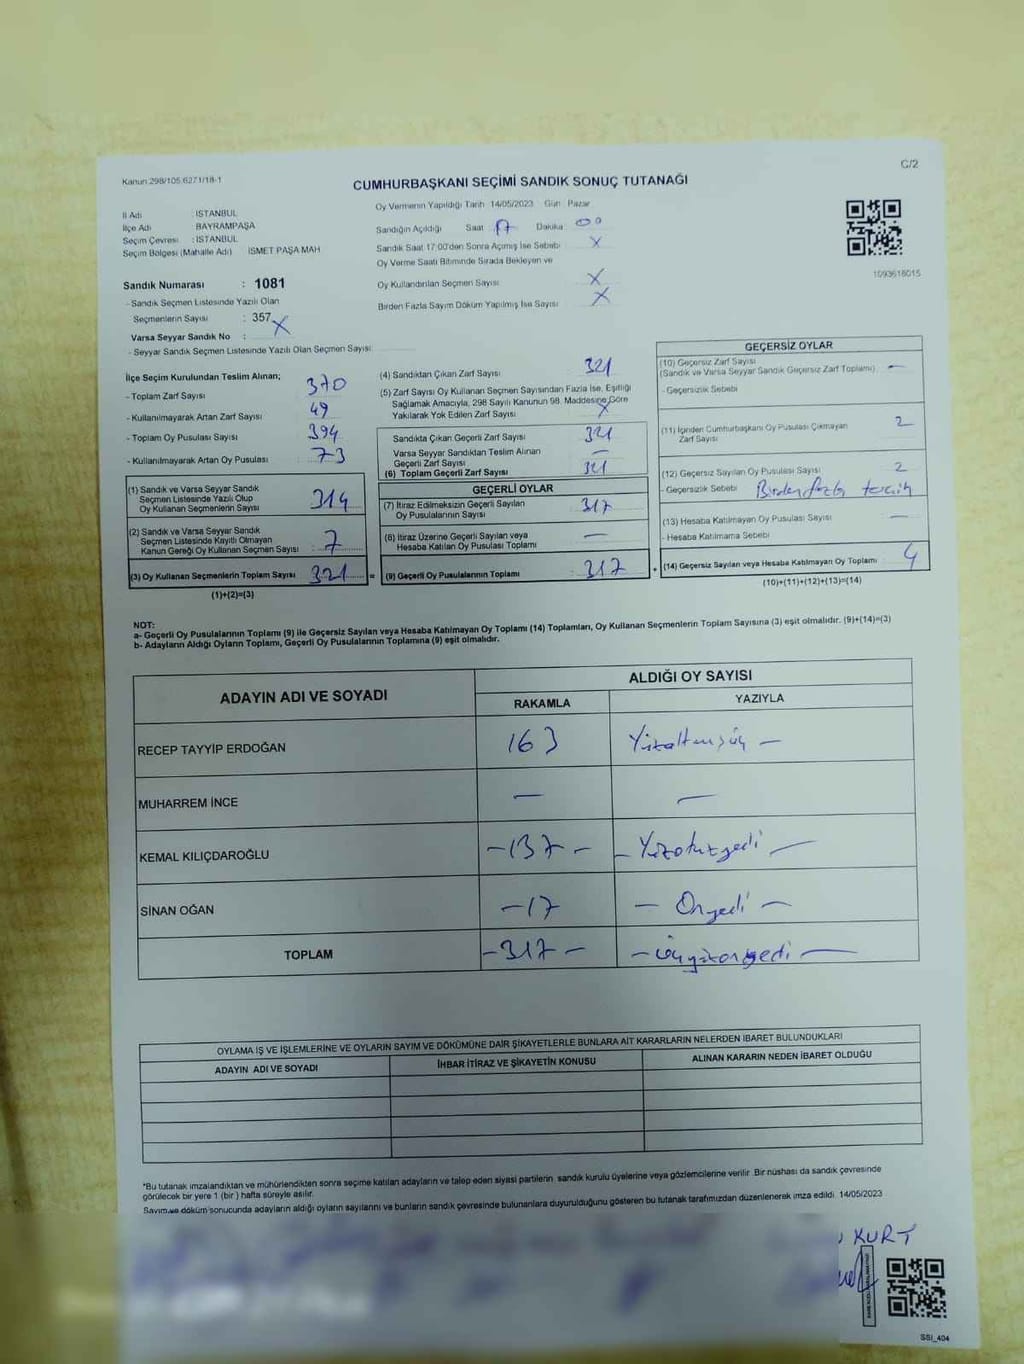 Kanun 298/105 6271/18-1
C/2
CUMHURBAŞKANI SEÇİMİ SANDIK SONUÇ TUTANAĞI
İl Adı : İSTANBUL
İlçe Adı : BAYRAMPAŞA
Seçim Çevresi : İSTANBUL
Seçim Bölgesi (Mahalle Adı) İSMET PAŞA MAH
Oy Vermenin Yapıldığı Tarih 14/05/2023 Gün Pazar
Sandığın Açıldığı Saat 17 Dakika 00
Sandık Saat 17:00'den Sonra Açımış İse Sebebi X
Oy Verme Saati Bitiminde Sırada Bekleyen ve
Oy Kullandırılan Seçmen Sayısı X
Birden Fazla Sayım Döküm Yapılmış İse Sayısı X
1093618015
Sandık Numarası : 1081
- Sandık Seçmen Listesinde Yazılı Olan
Seçmenlerin Sayısı : 357
Varsa Seyyar Sandık No : X
- Seyyar Sandık Seçmen Listesinde Yazılı Olan Seçmen Sayısı
İlçe Seçim Kurulundan Teslim Alınan;
- Toplam Zarf Sayısı 370
- Kullanılmayarak Artan Zarf Sayısı 49
- Toplam Oy Pusulası Sayısı 394
- Kullanılmayarak Artan Oy Pusulası 73
(1) Sandık ve Varsa Seyyar Sandık
Seçmen Listesinde Yazılı Olup
Oy Kullanan Seçmenlerin Sayısı 314
(2) Sandık ve Varsa Seyyar Sandık
Seçmen Listesinde Kayıtlı Olmayan
Kanun Gereği Oy Kullanan Seçmen Sayısı 7
(3) Oy Kullanan Seçmenlerin Toplam Sayısı 321 =
(1)+(2)=(3)
(4) Sandıktan Çıkan Zarf Sayısı 321
(5) Zarf Sayısı Oy Kullanan Seçmen Sayısından Fazla İse, Eşitliği
Sağlamak Amacıyla, 298 Sayılı Kanunun 98. Maddesine Göre
Yakılarak Yok Edilen Zarf Sayısı X
Sandıkta Çıkan Geçerli Zarf Sayısı 321
Varsa Seyyar Sandıktan Teslim Alınan
Geçerli Zarf Sayısı —
(6) Toplam Geçerli Zarf Sayısı 321
GEÇERLİ OYLAR
(7) İtiraz Edilmeksizin Geçerli Sayılan
Oy Pusulalarının Sayısı 317
(8) İtiraz Üzerine Geçerli Sayılan veya
Hesaba Katılan Oy Pusulası Toplamı —
(9) Geçerli Oy Pusulalarının Toplamı 317 +
GEÇERSİZ OYLAR
(10) Geçersiz Zarf Sayısı
(Sandık ve Varsa Seyyar Sandık Geçersiz Zarf Toplamı) —
- Geçersizlik Sebebi
(11) İçinden Cumhurbaşkanı Oy Pusulası Çıkmayan
Zarf Sayısı 2
(12) Geçersiz Sayılan Oy Pusulası Sayısı 2
- Geçersizlik Sebebi Birden fazla tercih
(13) Hesaba Katılmayan Oy Pusulası Sayısı —
- Hesaba Katılmama Sebebi
(14) Geçersiz Sayılan veya Hesaba Katılmayan Oy Toplamı 4
(10)+(11)+(12)+(13)=(14)
NOT:
a- Geçerli Oy Pusulalarının Toplamı (9) ile Geçersiz Sayılan veya Hesaba Katılmayan Oy Toplamı (14) Toplamları, Oy Kullanan Seçmenlerin Toplam Sayısına (3) eşit olmalıdır. (9)+(14)=(3)
b- Adayların Aldığı Oyların Toplamı, Geçerli Oy Pusulalarının Toplamına (9) eşit olmalıdır.
ADAYIN ADI VE SOYADI
ALDIĞI OY SAYISI
RAKAMLA YAZIYLA
RECEP TAYYİP ERDOĞAN 163 Yüzaltmışüç —
MUHARREM İNCE — —
KEMAL KILIÇDAROĞLU -137- — Yüzotuzyedi —
SİNAN OĞAN -17 — Onyedi —
TOPLAM -317- — üçyüzonyedi —
OYLAMA İŞ VE İŞLEMLERİNE VE OYLARIN SAYIM VE DÖKÜMÜNE DAİR ŞİKAYETLERLE BUNLARA AİT KARARLARIN NELERDEN İBARET BULUNDUKLARI
ADAYIN ADI VE SOYADI İHBAR İTİRAZ VE ŞİKAYETİN KONUSU ALINAN KARARIN NEDEN İBARET OLDUĞU
*Bu tutanak imzalandıktan ve mühürlendikten sonra seçime katılan adayların ve talep eden siyasi partilerin sandık kurulu üyelerine veya gözlemcilerine verilir. Bir nüshası da sandık çevresinde
görülecek bir yere 1 (bir) hafta süreyle asılır.
Sayım ve döküm sonucunda adayların aldığı oyların sayılarını ve bunların sandık çevresinde bulunanlara duyurulduğunu gösteren bu tutanak tarafımızdan düzenlenerek imza edildi. 14/05/2023
KURT
SSI_404